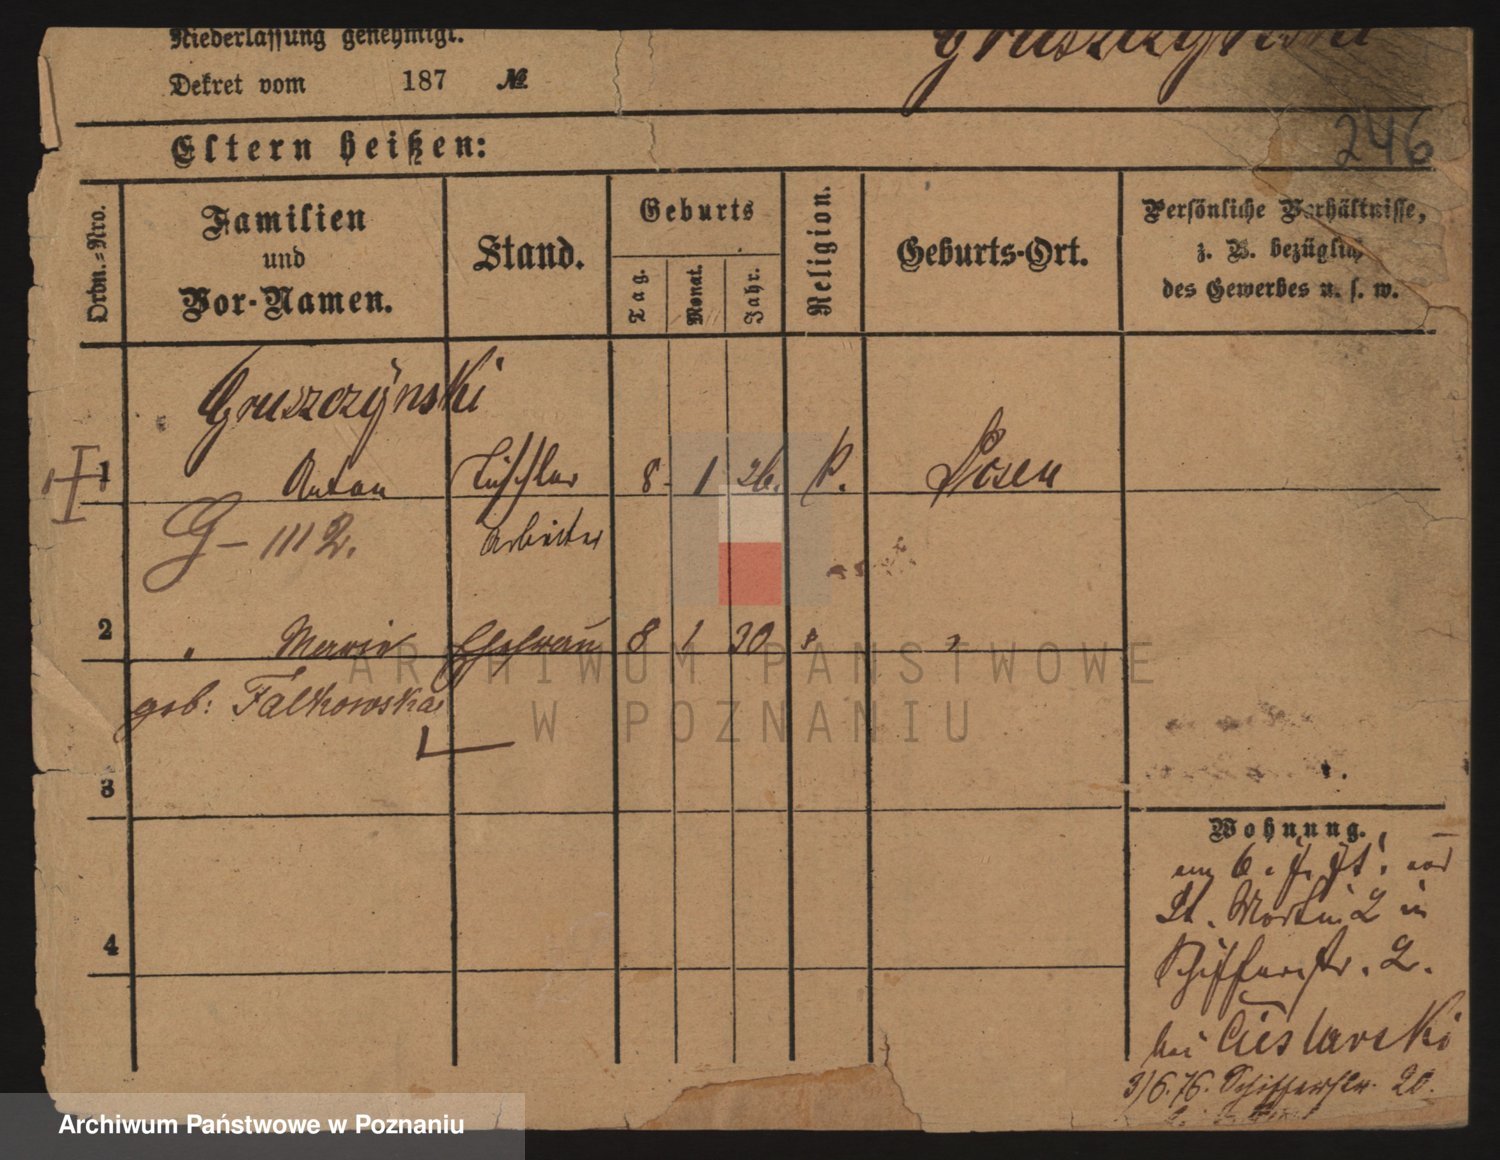 Niederlassung genehmigt.
Gruszczynski
Dekret vom 187 №
Eltern heißen:
246
Ordn.=Nro.
Familien
und
Vor-Namen.
Stand.
Geburts
Tag.
Monat.
Jahr.
Religion.
Geburts-Ort.
Persönliche Verhältnisse,
z. B. bezüglich
des Gewerbes u. s. w.
Gruszczÿnski
1 Anton Tischler 8. 1 26. K. Posen
G – 1112. Arbeiter
2 " Marie Ehefrau 8 1 30 "
geb: Falkowska
3
4
Wohnung.
St. Martin 2 in
Schifferstr. 2.
bei Cieslarski
3/6.76. Schifferstr. 20.
ARCHIWUM PAŃSTWOWE
W POZNANIU
Archiwum Państwowe w Poznaniu